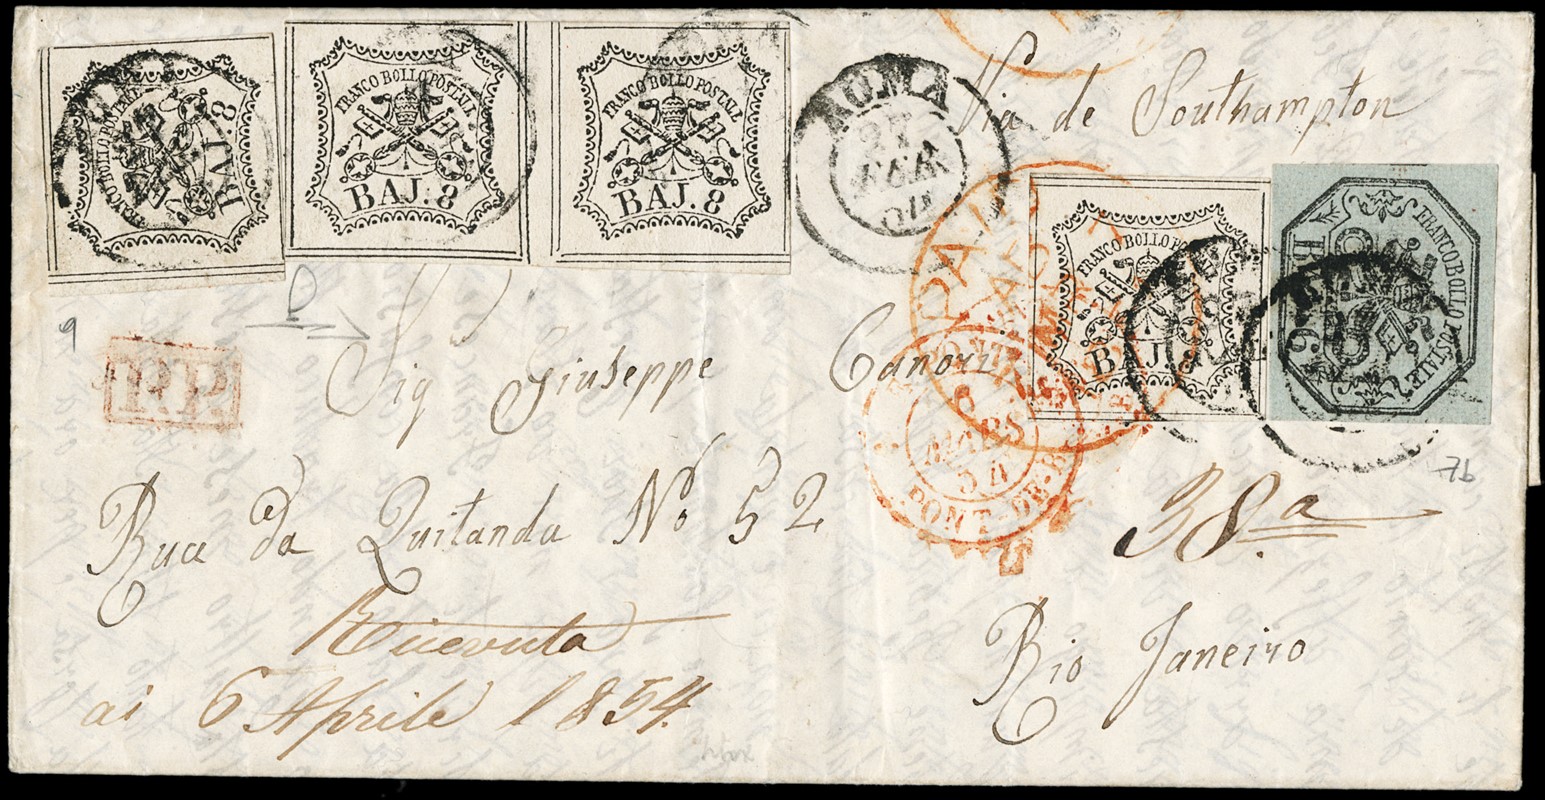 FRANCO BOLLO POSTALE
BAJ. 8
FRANCO BOLLO POSTALE
BAJ. 8
FRANCO BOLLO POSTALE
BAJ. 8
ROMA
FEB
54
Via de Southampton
PAID
FRANCO BOLLO POSTALE
BAJ. 8
FRANCO BOLLO POSTALE
BAJ
6
9
D
P.P.
Sig Giuseppe Canori
6
MARS
54
PONT-DE-B
7b
Rua da Quitanda No 52
38.a
Ricevuta
ai 6 Aprile 1854.
Rio Janeiro